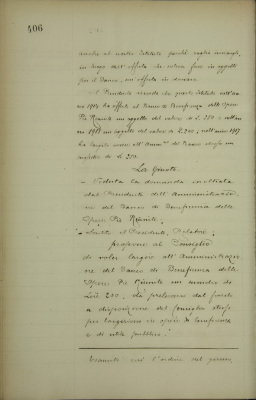 406
anche al nostro Istituto perchè voglia
in luogo dell'offerta che soleva fare in oggetti
per il Banco, un'offerta in denaro.
Il Presidente ricorda che questo Istituto nell'an-
no 1904 ha offerto al Banco di Beneficenza delle Opere
Pie Riunite un oggetto del valore di L. 250 e nell'an-
no un oggetto del valore di L. 200; nell'anno 1907
ha largito invece all'Amm.ne del Banco stesso un
sussidio di L. 250.
La Giunta
- Veduta la domanda inoltrata
dal Presidente dell'Amministrazio-
ne del Banco di Beneficenza delle
Opere Pie Riunite;
- Sentito il Presidente, Relatore;
propone al Consiglio
di voler largire all'Amministrazio-
ne del Banco di Beneficenza delle
Opere Pie Riunite un sussidio di
Lire 200, da prelevare dal fondo
a disposizione del Consiglio stesso
per largizioni in opere di beneficenza
e di utilità pubblica.
Esaurito così l'ordine del giorno,